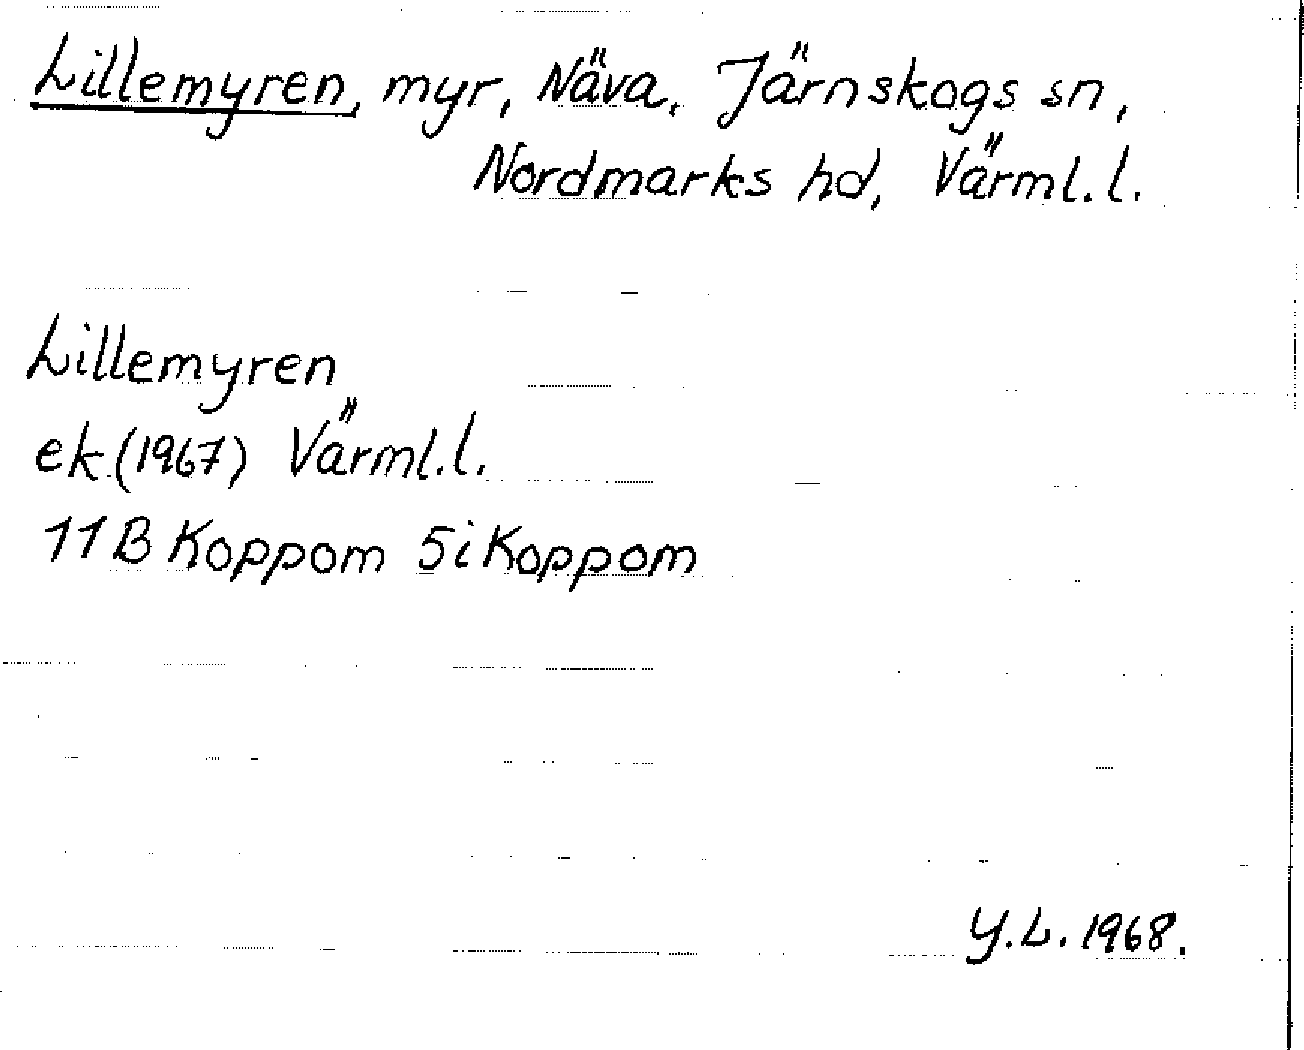 Lillemyren, myr, Näva, Järnskogs sn,
Nordmarks hd, Värml.l.
Lillemyren
ek.(1967) Värml.l.
11B Koppom 5i Koppom
Y.L. 1968.